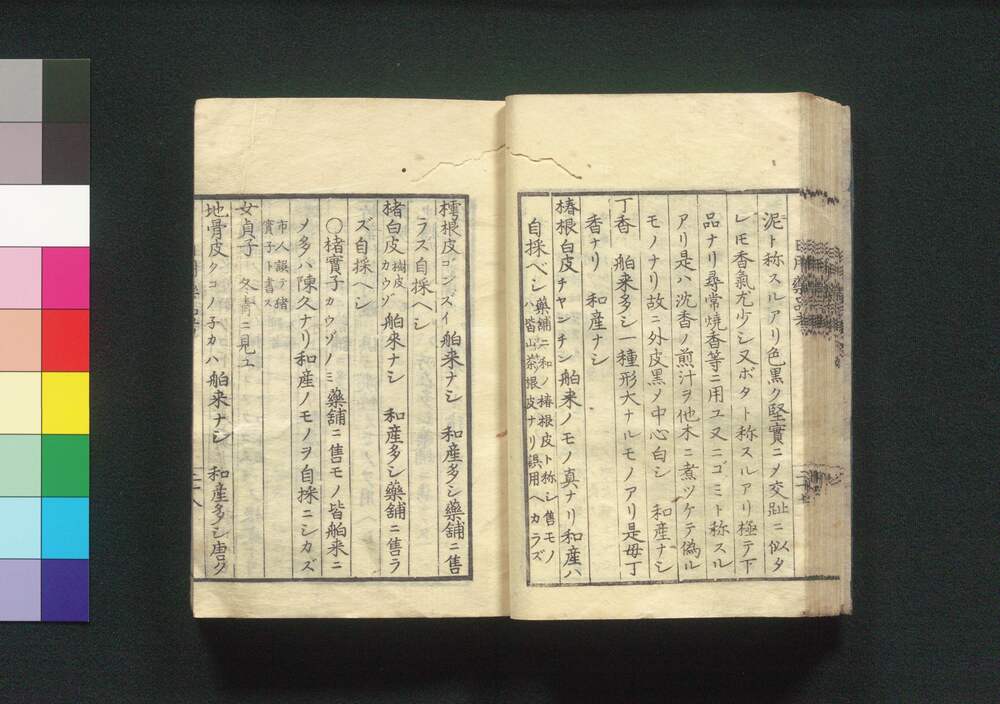 泥ト称スルアリ色黒ク堅實ニメ交趾ニ似タ
レモ香氣尤少シ又ボタト称スルアリ極テ下
品ナリ尋常焼香等ニ用ユ又ニゴミト称スル
アリ是ハ沈香ノ煎汁ヲ他木ニ煮ツケテ偽ル
モノナリ故ニ外皮黒メ中心白シ 和産ナシ
丁香 舶来多シ一種形大ナルモノアリ是毋丁
香ナリ 和産ナシ
椿根白皮チヤンチン舶来ノモノ真ナリ和産ハ
自採ベシ
藥舗ニ和ノ椿根皮ト称シ售モノ
ハ皆山茶根皮ナリ誤用ヘカラズ
樗根皮ゴンズイ 舶来ナシ 和産多シ藥舗ニ售
ラズ自採ヘシ
楮白皮 樹皮カウゾ 舶来ナシ 和産多シ藥舗ニ售ラ
ズ自採ヘシ
〇楮實子カウゾノミ 藥舗ニ售モノ皆舶来ニ
メ多ハ陳久ナリ和産ノモノヲ自採ニシカズ
市人誤テ猪
實子ト書ス
女貞子 冬青ニ見ユ
地骨皮クコノ子カハ 舶来ナシ 和産多シ唐ク
二十八